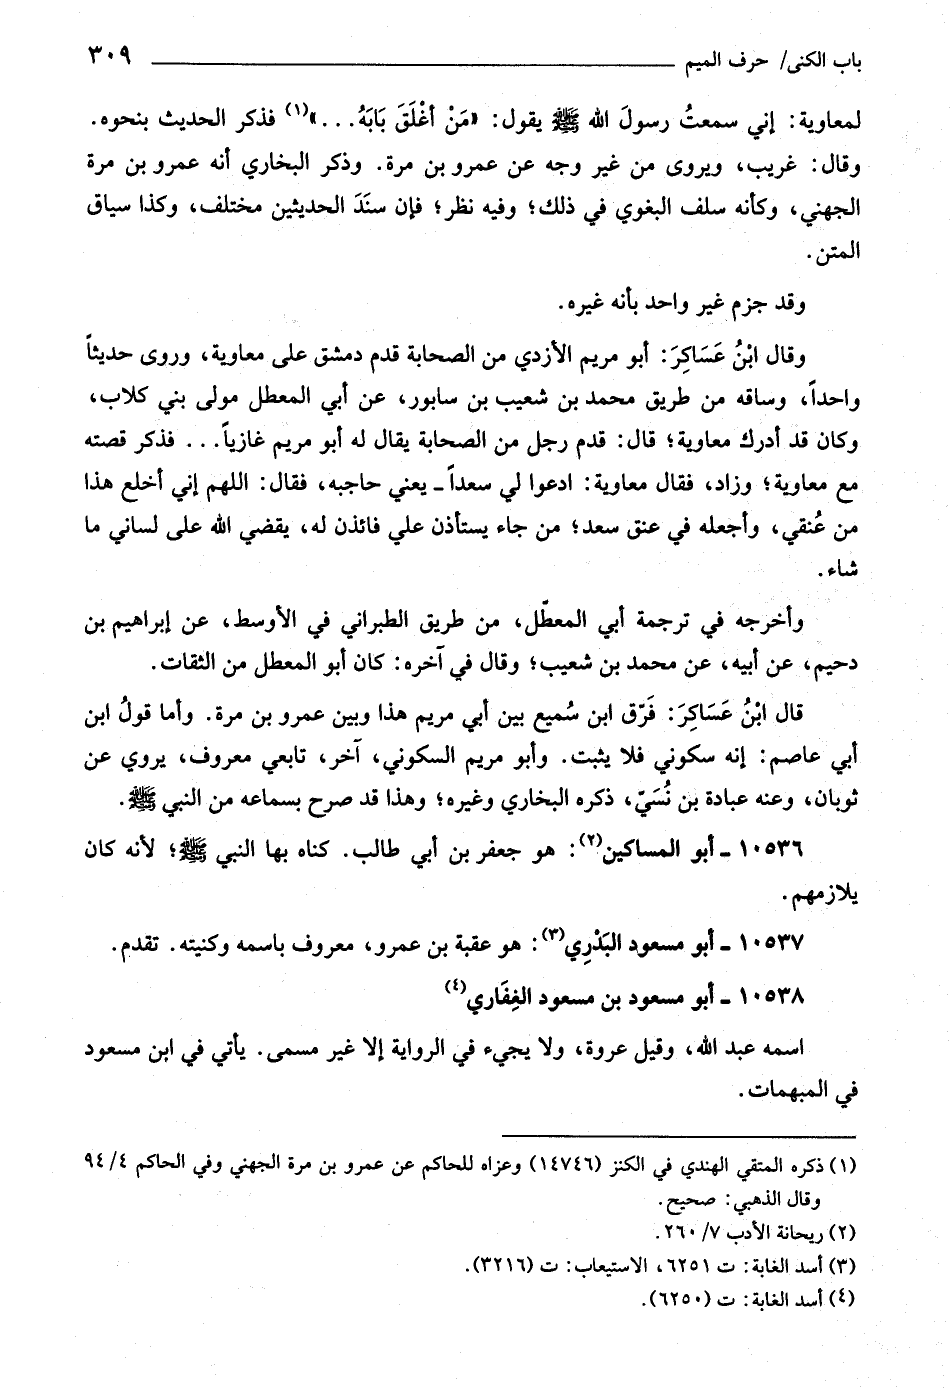 باب الكنى/ حرف الميم ٣٠٩
لمعاوية: إني سمعتُ رسولَ الله ﷺ يقول: «مَنْ أَغْلَقَ بَابَهُ...»(١) فذكر الحديث بنحوه.
وقال: غريب، ويروى من غير وجه عن عمرو بن مرة. وذكر البخاري أنه عمرو بن مرة
الجهني، وكأنه سلف البغوي في ذلك؛ وفيه نظر؛ فإن سنَدَ الحديثين مختلف، وكذا سياق
المتن.
وقد جزم غير واحد بأنه غيره.
وقال ابْنُ عَسَاكِرَ: أبو مريم الأزدي من الصحابة قدم دمشق على معاوية، وروى حديثاً
واحداً، وساقه من طريق محمد بن شعيب بن سابور، عن أبي المعطل مولى بني كلاب،
وكان قد أدرك معاوية؛ قال: قدم رجل من الصحابة يقال له أبو مريم غازياً... فذكر قصته
مع معاوية؛ وزاد، فقال معاوية: ادعوا لي سعداً ـ يعني حاجبه، فقال: اللهم إني أخلع هذا
من عُنقي، وأجعله في عنق سعد؛ من جاء يستأذن علي فائذن له، يقضي الله على لساني ما
شاء.
وأخرجه في ترجمة أبي المعطّل، من طريق الطبراني في الأوسط، عن إبراهيم بن
دحيم، عن أبيه، عن محمد بن شعيب؛ وقال في آخره: كان أبو المعطل من الثقات.
قال ابْنُ عَسَاكِرَ: فَرّق ابن سُميع بين أبي مريم هذا وبين عمرو بن مرة. وأما قولُ ابن
أبي عاصم: إنه سكوني فلا يثبت. وأبو مريم السكوني، آخر، تابعي معروف، يروي عن
ثوبان، وعنه عبادة بن نُسَيّ، ذكره البخاري وغيره؛ وهذا قد صرح بسماعه من النبي ﷺ.
١٠٥٣٦ ـ أبو المساكين(٢): هو جعفر بن أبي طالب. كناه بها النبي ﷺ؛ لأنه كان
يلازمهم.
١٠٥٣٧ ـ أبو مسعود البَدْرِي(٣): هو عقبة بن عمرو، معروف باسمه وكنيته. تقدم.
١٠٥٣٨ ـ أبو مسعود بن مسعود الغِفَاري(٤)
اسمه عبد الله، وقيل عروة، ولا يجيء في الرواية إلا غير مسمى. يأتي في ابن مسعود
في المبهمات.
(١) ذكره المتقي الهندي في الكنز (١٤٧٤٦) وعزاه للحاكم عن عمرو بن مرة الجهني وفي الحاكم ٩٤/٤
وقال الذهبي: صحيح.
(٢) ريحانة الأدب ٢٦٠/٧.
(٣) أسد الغابة: ت ٦٢٥١، الاستيعاب: ت (٣٢١٦).
(٤) أسد الغابة: ت (٦٢٥٠).